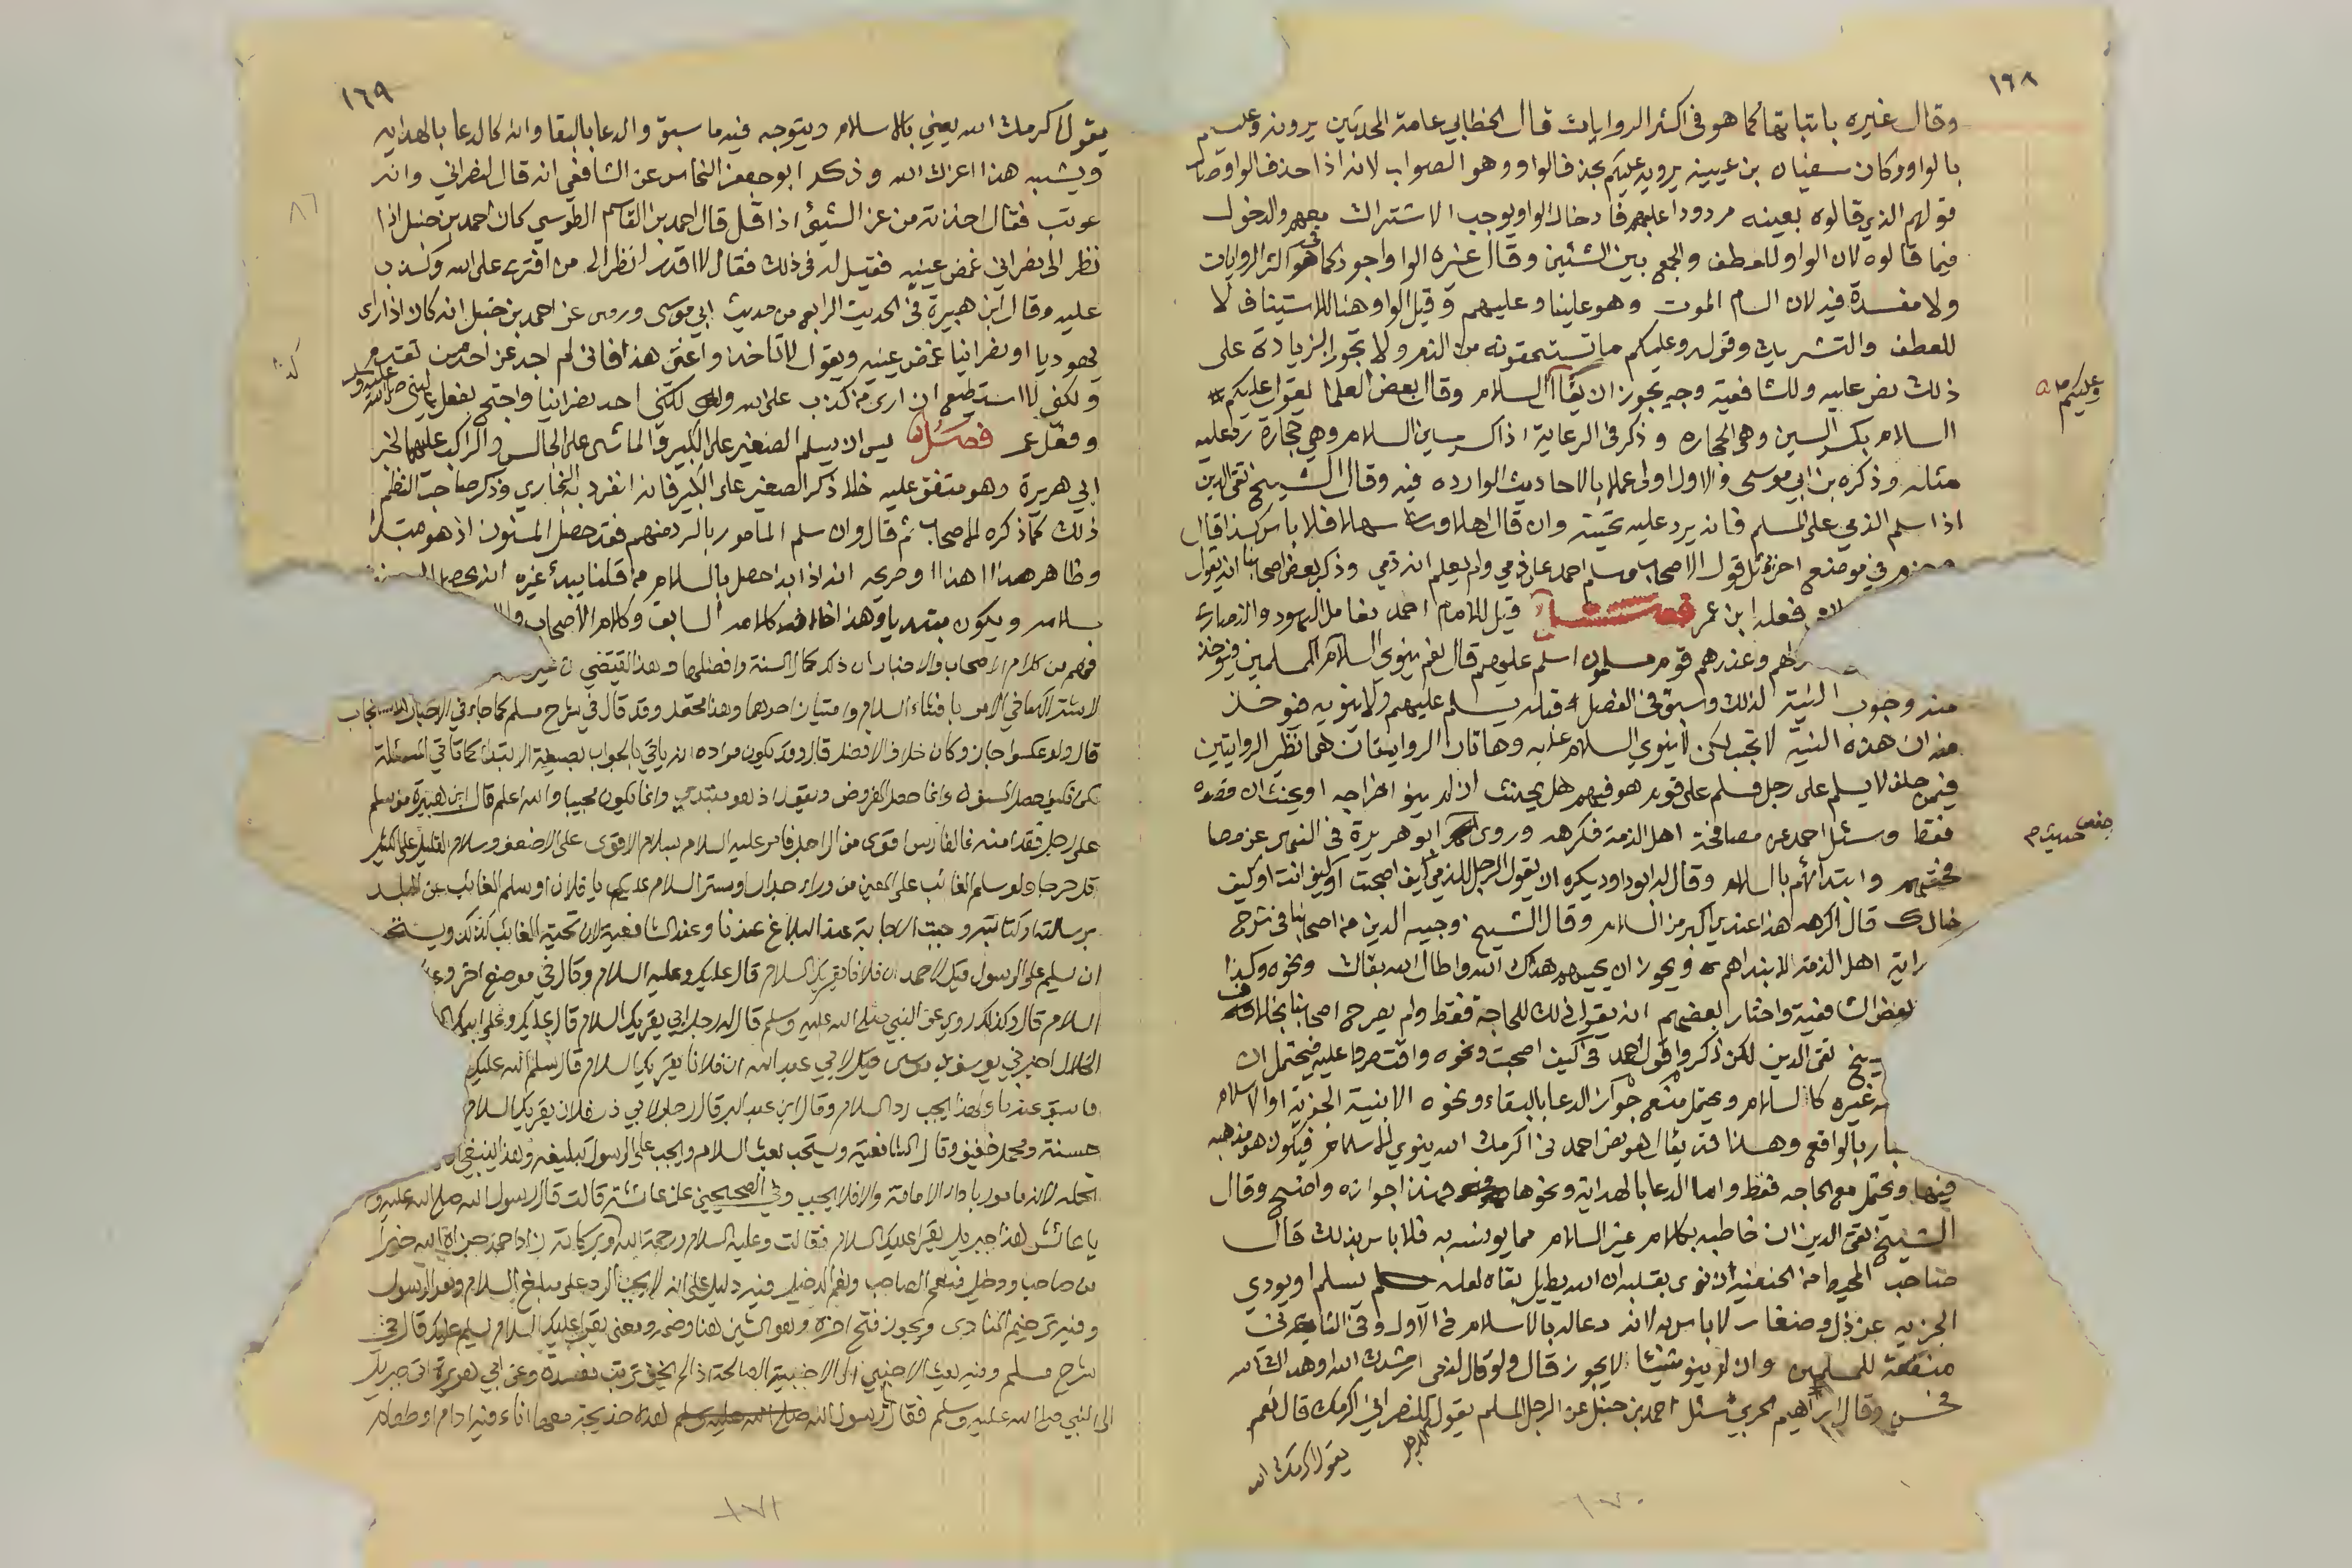 ١٦٨
وقال غيره باثباتها كما هو في اكثر الروايات قال الخطابي عامة المحدثين يروونه وعليكم
بالواو وكان سفيان بن عيينه يرويه عليكم بحذف الواو وهو الصواب لانه اذا حذف الواو صار
قولهم الذي قالوه بعينه مردودا عليهم فادخال الواو يوجب الاشتراك معهم والدخول
فيما قالوه لان الواو للعطف والجمع بين الشئين وقال غيره الواو اجود كما هو في اكثر الروايات
ولا مفسدة فيه لان السام الموت وهو علينا وعليهم وقيل الواو هنا للاستيناف لا
للعطف والتشريك وقوله وعليكم ما تستحقونه من الذم ولا تجوز الزيادة على
ذلك نص عليه وللشافعية وجه يجوز ان يقال السلام وقال بعض العلما يقول عليكم
وعليكم
السلام بكسر السين وهي الحجاره وذكر في الرعاية السلام وهي حجارة رد عليه
مثله وذكره بن ابي موسى والاول اولى عملا بالاحاديث الوارده فيه وقال الشيخ تقي الدين
اذا سلم الذمي على المسلم فانه يرد عليه تحيته وان قال اهلا وسهلا فلا باس كذا قال
في موضع اخر مثل قول الاصحاب وسلم احمد على ذمي ولم يعلم انه ذمي وذكر بعض اصحابنا انه يقول
فعله ابن عمر فصل قيل للامام احمد نعامل اليهود والنصارى
وعندهم قوم مسلمون اسلم عليهم قال نعم ينوي السلام المسلمين فيؤخذ
منه وجوب النية لذلك وسبق في الفصل قبله يسلم عليهم ولا ينويه فيؤخذ
منه ان هذه النية لا تجب لكن لا ينوي السلام عليه وهاتان الروايتان هما نظير الروايتين
فيمن حلف لا يسلم على رجل فسلم على قوم هو فيهم هل يحنث ان لم ينو اخراجه او يحنث ان قصده
فقط وسئل احمد عن مصافحة اهل الذمة فكرهه وروى ابو هريرة في النهي عن مصا
حفص حديث
فحتهم وابتدائهم بالسلام وقال له ابو داود يكره ان يقول الرجل للذمي كيف اصبحت او كيف انت او كيف
حالك قال اكرهه هذا عندي اكبر من السلام وقال الشيخ وجيه الدين من اصحابنا في شرح
اهل الذمة لابتداهم ويجوز ان يحييهم هداك الله واطال الله بقاك ونحوه وكذا
بعض الشافعية واختار بعضهم انه يقول ذلك للحاجة فقط ولم يصرح اصحابنا بخلافه
تقي الدين لكن ذكروا قول احمد في كيف اصبحت ونحوه واقتصروا عليه فيحتمل ان
غيره كالسلام ويحتمل منع جواز الدعا بالبقاء ونحوه الا بنية الجزية او الاسلام
بالواقع وهذا قد يقال هو نص احمد في اكرمك الله ينوي بالاسلام فيكون هو مذهبه
فيها ويحتمل مع الحاجه فقط واما الدعا بالهداية ونحوها فهذا جوازه واضح وقال
الشيخ تقي الدين ان خاطبه بكلام غير السلام مما يونسه به فلا باس بذلك قال
صاحب المحيط من الحنفية ان نوى بقلبه ان الله يطيل بقاه لعله يسلم او يودي
الجزيه عن ذل وصغار لا باس به لانه دعا له بالاسلام في الاول وفي الثاني
منفعة للمسلمين وان لم ينو شيئا لا يجوز قال ولو قال لذمي ارشدك الله او هداك الله
فحسن وقال ابراهيم الحربي سئل احمد بن حنبل عن الرجل المسلم يقول للنصراني اكرمك قال نعم
يقول اكرمك الله
١٧٠
١٦٩
يقول اكرمك الله يعني بالاسلام ويتوجه فيه ما سبق والدعا بالبقا وانه كالدعا بالهدايه
ويشبه هذا اعزك الله وذكر ابو جعفر النحاس عن الشافعي انه قال لنصراني وانه
عوتب فقال اخذته من عز الشيئ اذا قل قال احمد بن القاسم الطوسي كان احمد بن حنبل اذا
٨٦
نظر الى نصراني غمض عينيه فقيل له في ذلك فقال لا اقدر انظر الى من افترى على الله وكذب
عليه وقال ابن هبيرة في الحديث الرابع من حديث ابي موسى وروي عن احمد بن حنبل انه كان اذا راى
يهوديا او نصرانيا غمض عينيه ويقول لا تاخذوا عني هذا فاني لم اجد عن احد ممن تقدم
ولكني لا استطيع ان ارى من كذب على الله احد نصرانيا واحتج بفعل النبي صلى الله عليه وسلم
وفعل عمر فصل يسن ان يسلم الصغير على الكبير والماشي على الجالس والراكب عليهما لخبر
ابي هريرة وهو متفق عليه خلا ذكر الصغير على الكبير فانه انفرد به البخاري وذكر صاحب النظم
ذلك كما ذكره الاصحاب ثم قال وان سلم المامور بالرد منهم فقد حصل المسنون اذ هو مبتدا
وظاهر هذا وصريحه انه اذا بدا حصل بالسلام من قلنا يبدأ غيره انه يحصل
سلام ويكون مبتديا وهذا خلاف كلامه السابق وكلام الاصحاب
فهم من كلام الاصحاب والاخبار ان ذكر كمال السنة وافضلها وهذا يقتضي
لاشتراكهما في الامر بافشاء السلام وامتياز احدهما وهذا محتمل وقد قال في شرح مسلم كما جاء في الاخبار للاستحباب
قال ولو عكسوا جاز وكان خلاف الافضل قال وقد يكون مراده انه ياتي بالجواب بصيغة الابتداء كما تاتي المسئلة
حصل المسنون وانما حصل المفروض ويقول اذ هو مبتدي وانما يكون مجيبا والله اعلم قال ابن هبيرة من سلم
على رجل فقد امنه فالفارس اقوى من الراجل فامر عليه السلام بسلام الاقوى على الاضعف وسلام القليل على الكثير
ولو سلم الغائب على المعين من وراء جدار او ستر السلام عليكم يا فلان او سلم الغائب عن البلد
برسالته او كتابته وجبت الاجابة عند البلاغ عندنا وعند الشافعية لان تحية الغائب كذلك ويستحب
ان يسلم على الرسول قيل لاحمد ان فلانا يقريك السلام قال عليك وعليه السلام وقال في موضع اخر
السلام قال وكذلك روي عن النبي صلى الله عليه وسلم قال له رجل ابي يقريك السلام قال عليك وعلى ابيك
الخلال اخبرني يوسف بن موسى قيل لابي عبد الله ان فلانا يقريك السلام قال سلم الله عليك
رد السلام وقال ابن عبد البر قال رجل لابي ذر فلان يقريك السلام
حسنة ومحمل خفيف وقال الشافعية ويستحب بعث السلام ويجب على الرسول تبليغه وهذا ينبغي
تحمله لانه مامور باداء الامانة والا فلا يجب وفي الصحيحين عن عائشة قالت قال رسول الله صلى الله عليه و
يا عائش هذا جبريل يقرا عليك السلام فقالت وعليه السلام ورحمة الله وبركاته زاد احمد جزاه الله خيرا
من صاحب ودخيل فنعم الصاحب ونعم الدخيل فيه دليل على انه لا يجب الرد على مبلغ السلام وهو الرسول
وفيه ترخيم المنادى ويجوز فتح اخره وهو الشين هنا وضمه ومعنى يقرا عليك السلام يسلم عليك قال في
شرح مسلم وفيه بعث الاجنبي الى الاجنبية الصالحة اذا لم يخف ترتب مفسدة وعن ابي هريرة اتى جبريل
الى النبي صلى الله عليه وسلم فقال رسول الله صلى الله عليه وسلم هذه خديجة معها اناء فيه ادام او طعام
١٧١